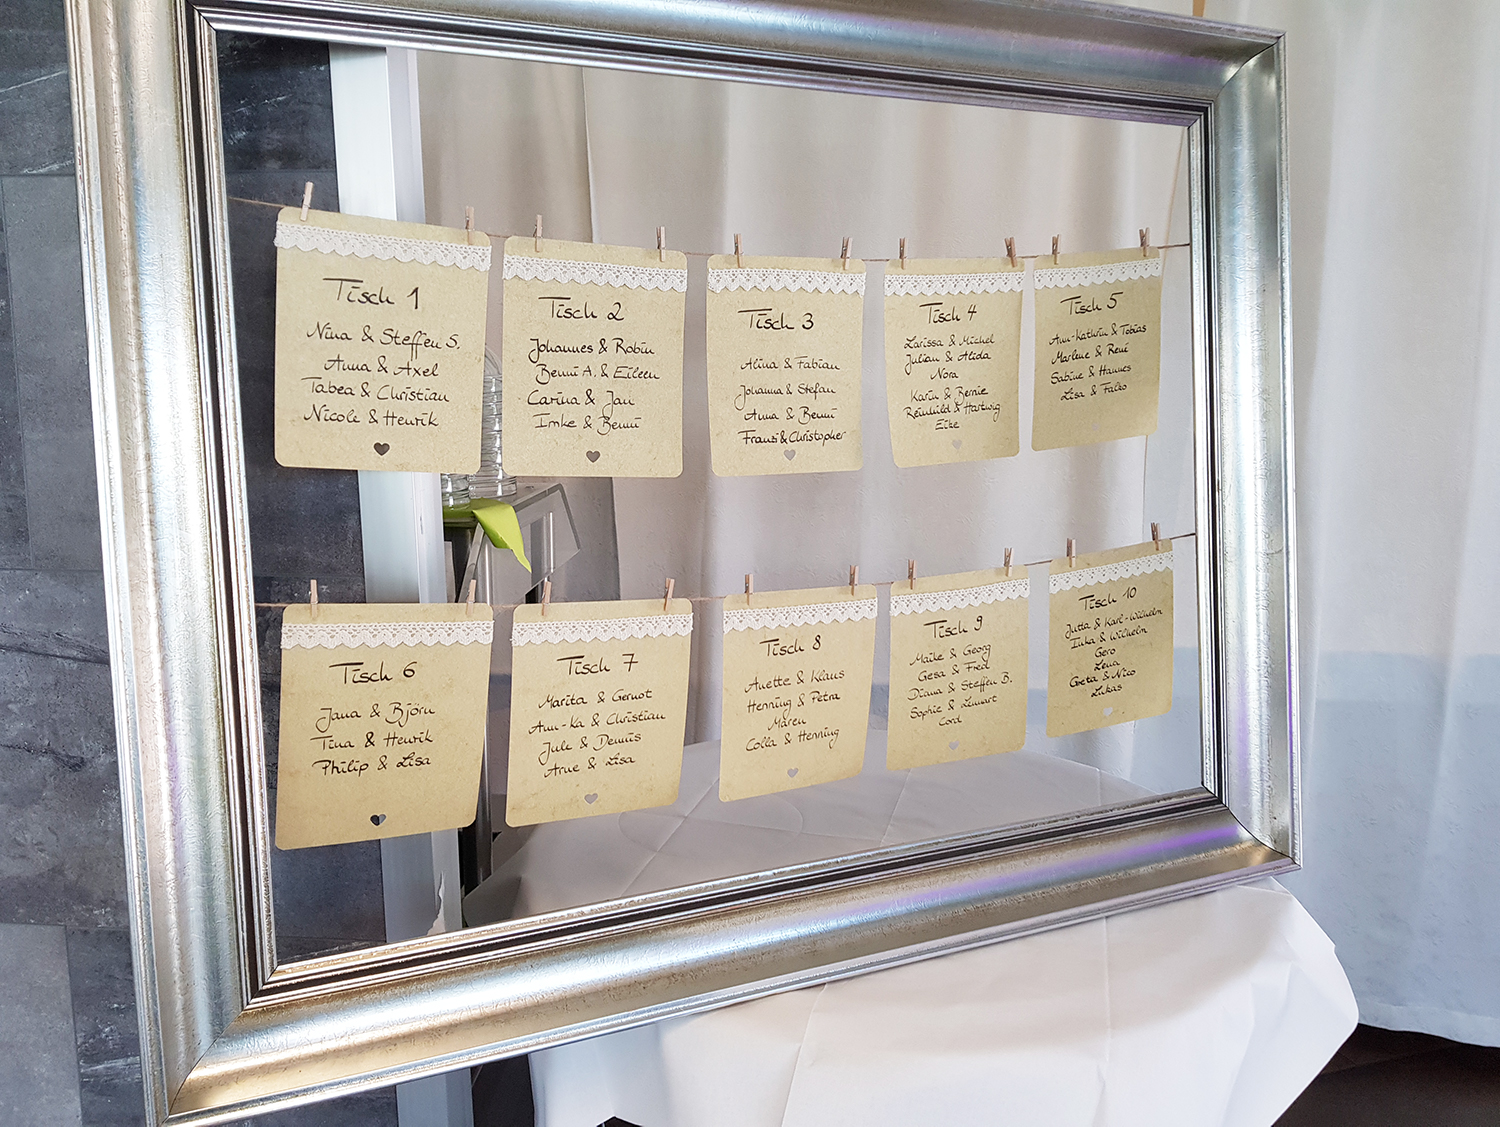 Tisch 1
Nina & Steffen S.
Anna & Axel
Tabea & Christian
Nicole & Henrik
Tisch 2
Johannes & Robin
Benni A. & Eileen
Carina & Jan
Imke & Benni
Tisch 3
Alina & Fabian
Johanna & Stefan
Anna & Benni
Franzi & Christopher
Tisch 4
Larissa & Michel
Julian & Alida
Nora
Karin & Bernie
Reinhild & Hartwig
Eike
Tisch 5
Ann-Kathrin & Tobias
Marlene & René
Sabine & Hannes
Lisa & Falko
Tisch 6
Jana & Björn
Tina & Henrik
Philip & Lisa
Tisch 7
Marita & Gernot
Ann-Ka & Christian
Jule & Dennis
Arne & Lisa
Tisch 8
Anette & Klaus
Henning & Petra
Maren
Colla & Henning
Tisch 9
Maike & Georg
Gesa & Fred
Diana & Steffen B.
Sophie & Lennart
Cord
Tisch 10
Jutta & Karl-Wilhelm
Inka & Wilhelm
Gero
Lena
Greta & Nico
Lukas